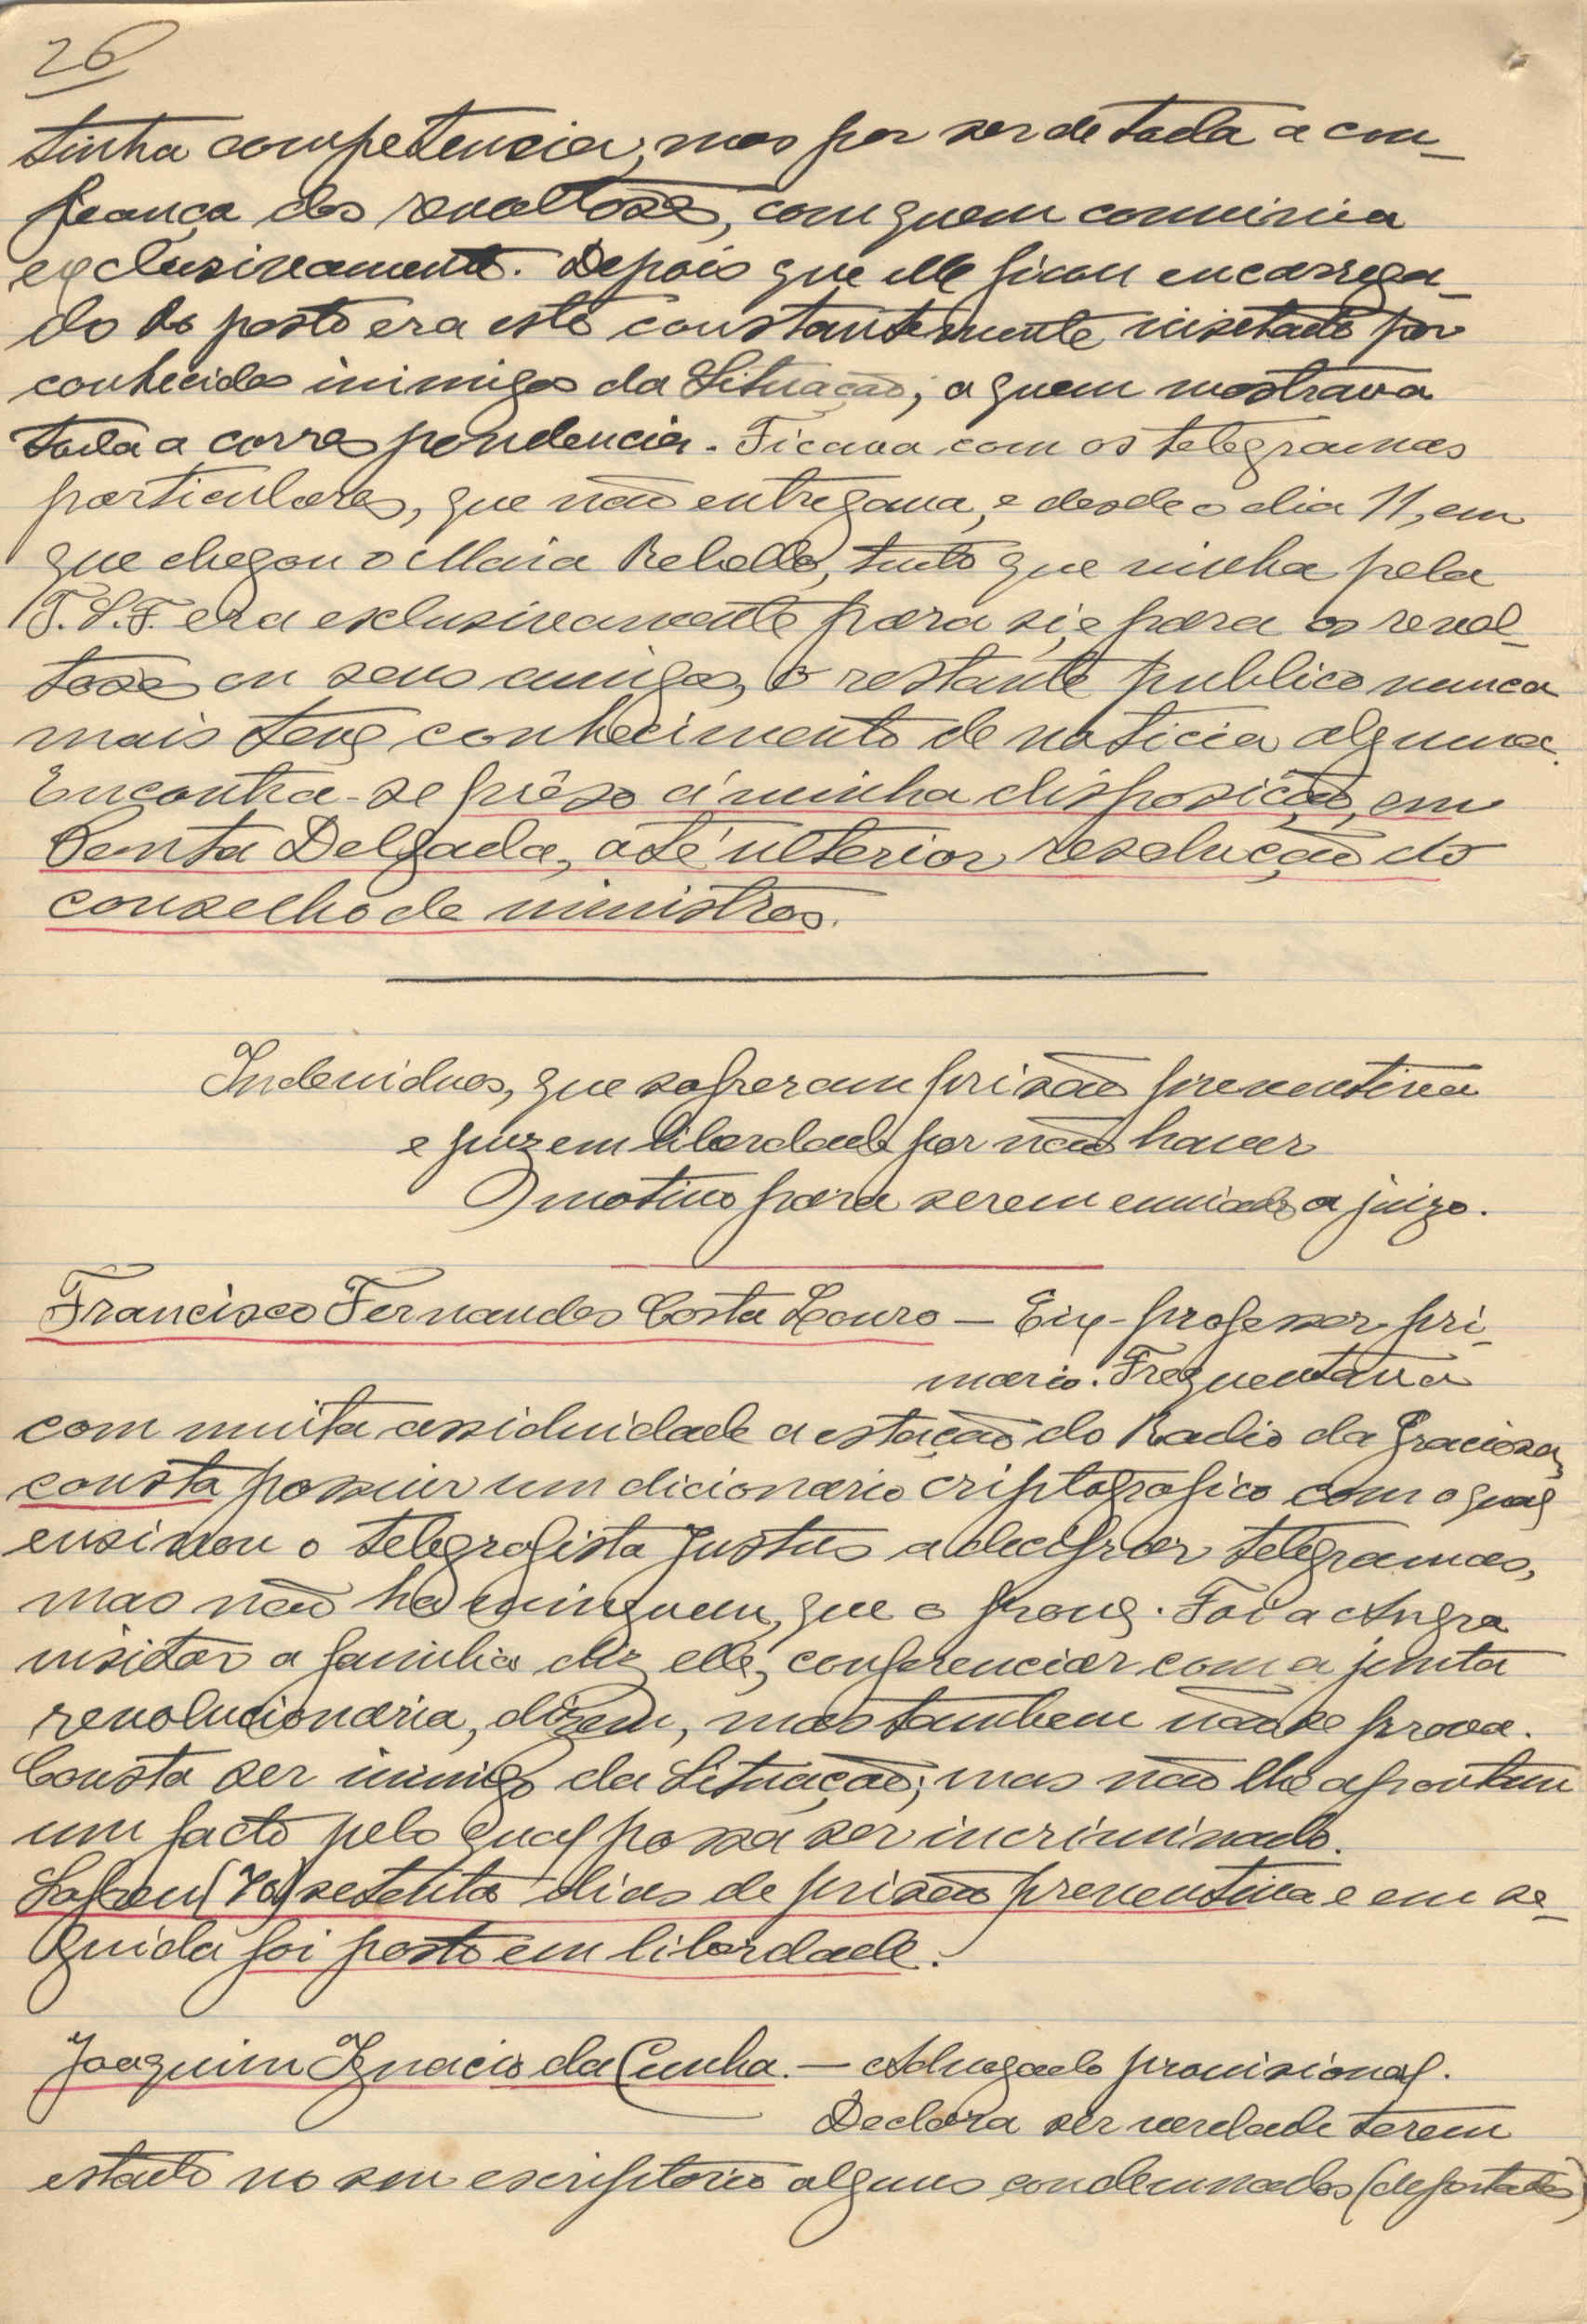 26
tinha competencia, mas por ser de toda a con-
fiança dos revoltosos, com quem convivia
exclusivamente. Depois que elle ficou encarrega-
do do posto era este constantemente visitado por
conhecidos inimigos da Situação, a quem mostrava
toda a correspondencia. Ficava com os telegramas
particulares, que não entregava, e desde o dia 11, em
que chegou o Maia Rebello, tudo que vinha pela
T.S.F. era exclusivamente para si, e para os revol-
tosos ou seus amigos, o restante publico nunca
mais teve conhecimento de noticia alguma.
Encontra-se prêso á minha disposição, em
Ponta Delgada, até ulterior resolução do
conselho de ministros.
Indeviduos, que sofreram prisão preventiva
e puz em liberdade por não haver
motivo para serem enviados a juizo.
Francisco Fernandes Costa Louro — Ex-professor pri-
mario. Frequentava
com muita assiduidade a estação do Radio da Graciosa,
consta possuir um dicionario criptografico com o qual
ensinou o telegrafista Justus a decifrar telegramas,
mas não ha ninguem, que o prove. Foi a Angra
visitar a familia diz elle, conferenciar com a junta
revolucionaria, dizem, mas tambem não se prova.
Consta ser inimigo da Situação; mas não lhe apontam
um facto pelo qual possa ser incriminado.
Sofreu (70) setenta dias de prisão preventiva e em se-
guida foi posto em liberdade.
Joaquim Ignacio da Cunha. — Advogado provisional.
Declara ser verdade terem
estado no seu escriptorio alguns condemnados (deportados)